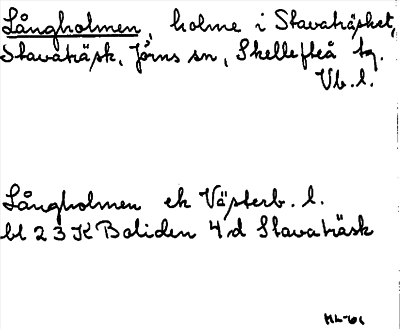 Långholmen, holme i Stavaträsket,
Stavaträsk, Jörns sn, Skellefteå tg.
Vb.l.
Långholmen ek Västerb. l.
bl 23 K Boliden 4 d Stavaträsk